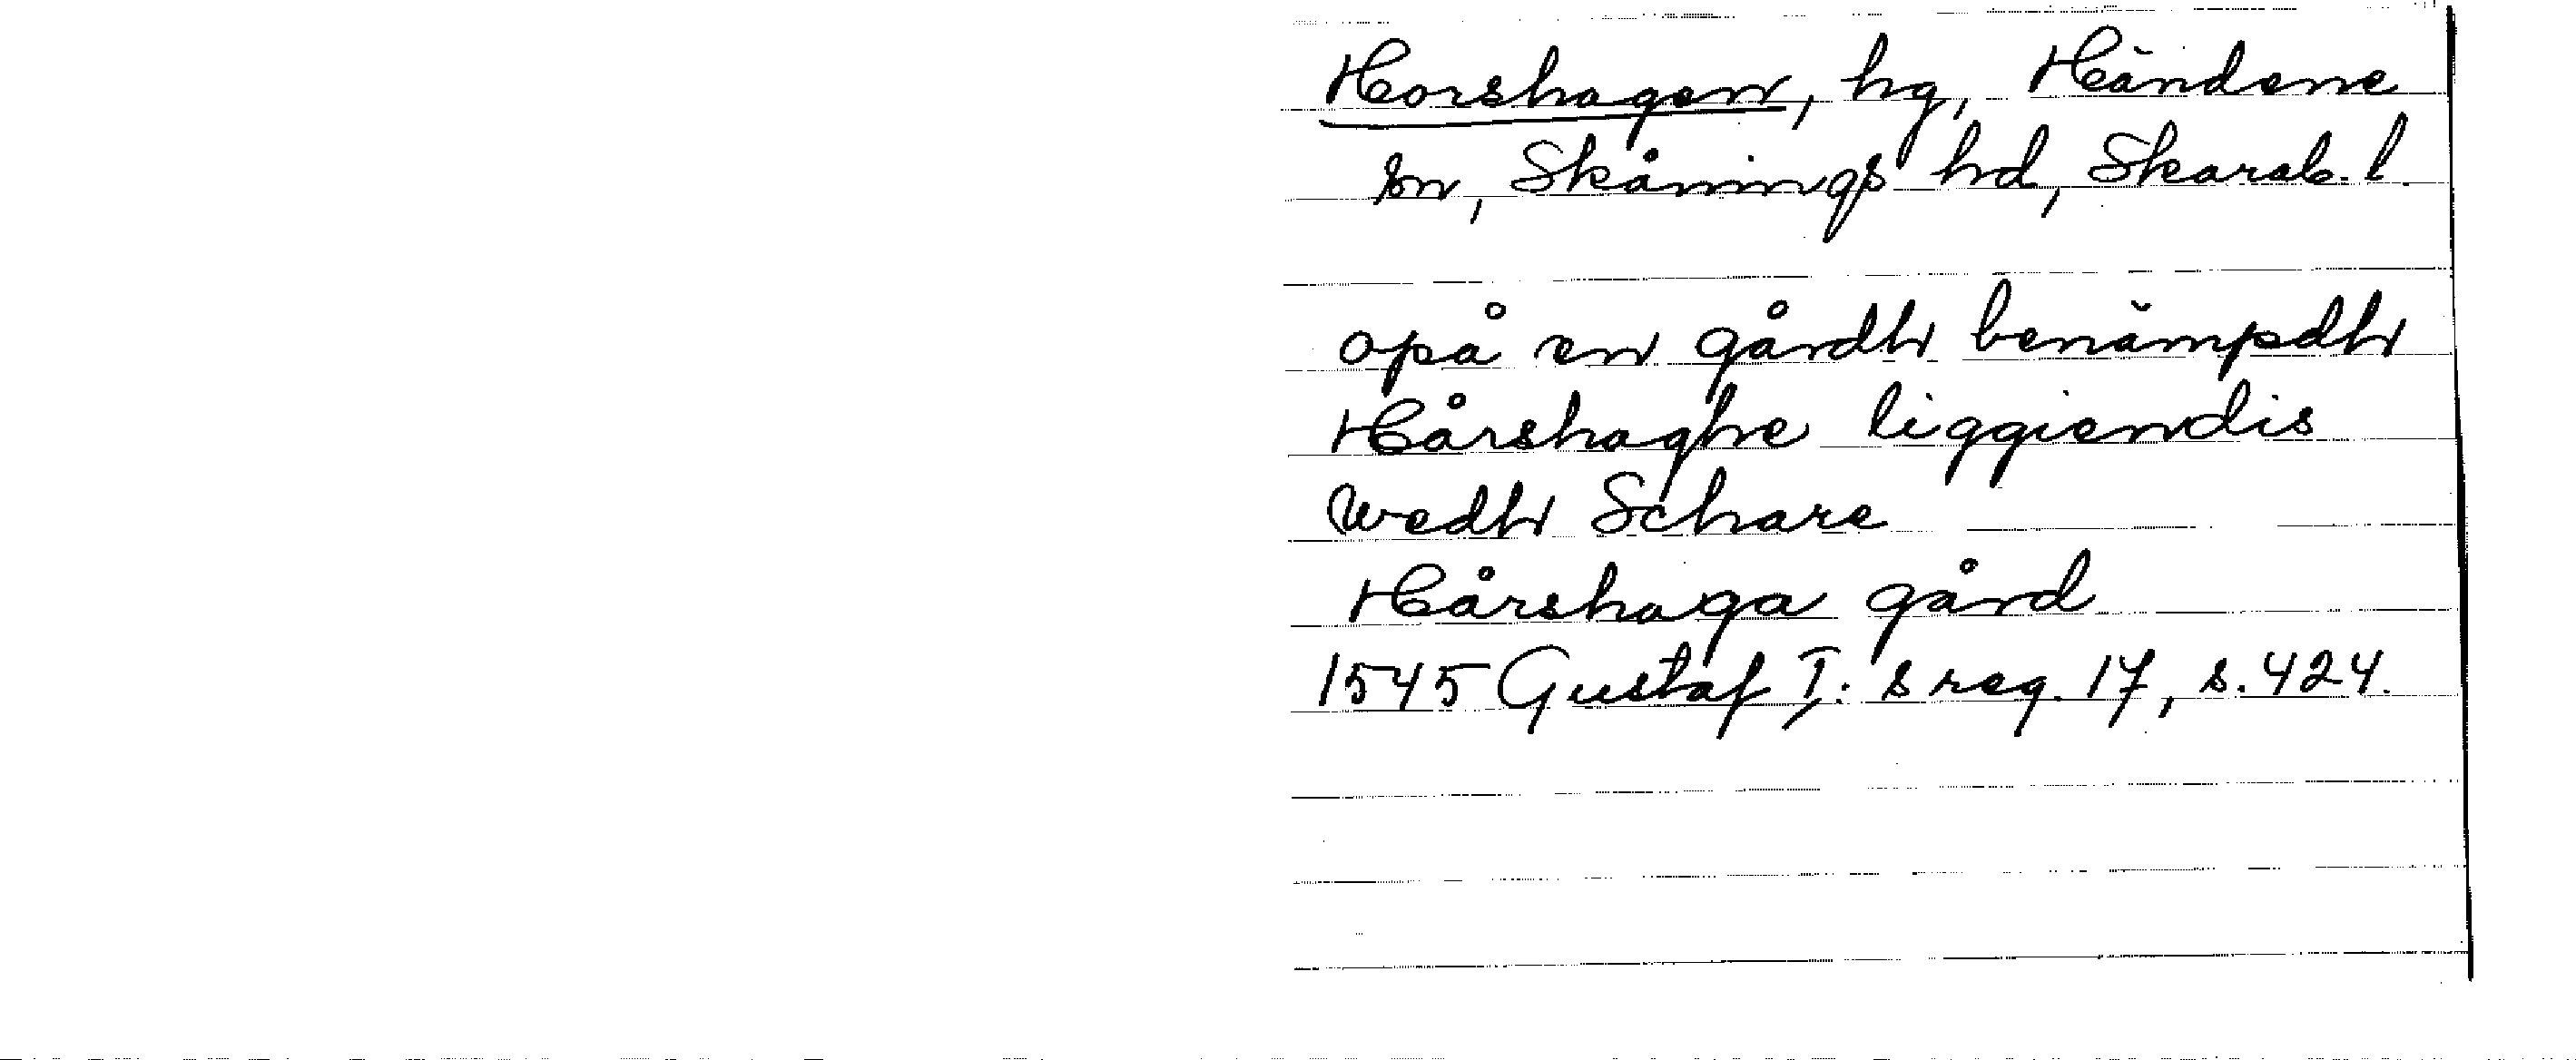 Horshagen, hg, Händene
sn, Skånings hd, Skarab. l.
opå en gårdh benämpdh
Hårshaghe liggiendis
wedh Schare
Hårshaga gård
1545 Gustaf I: s reg. 17, s. 424.